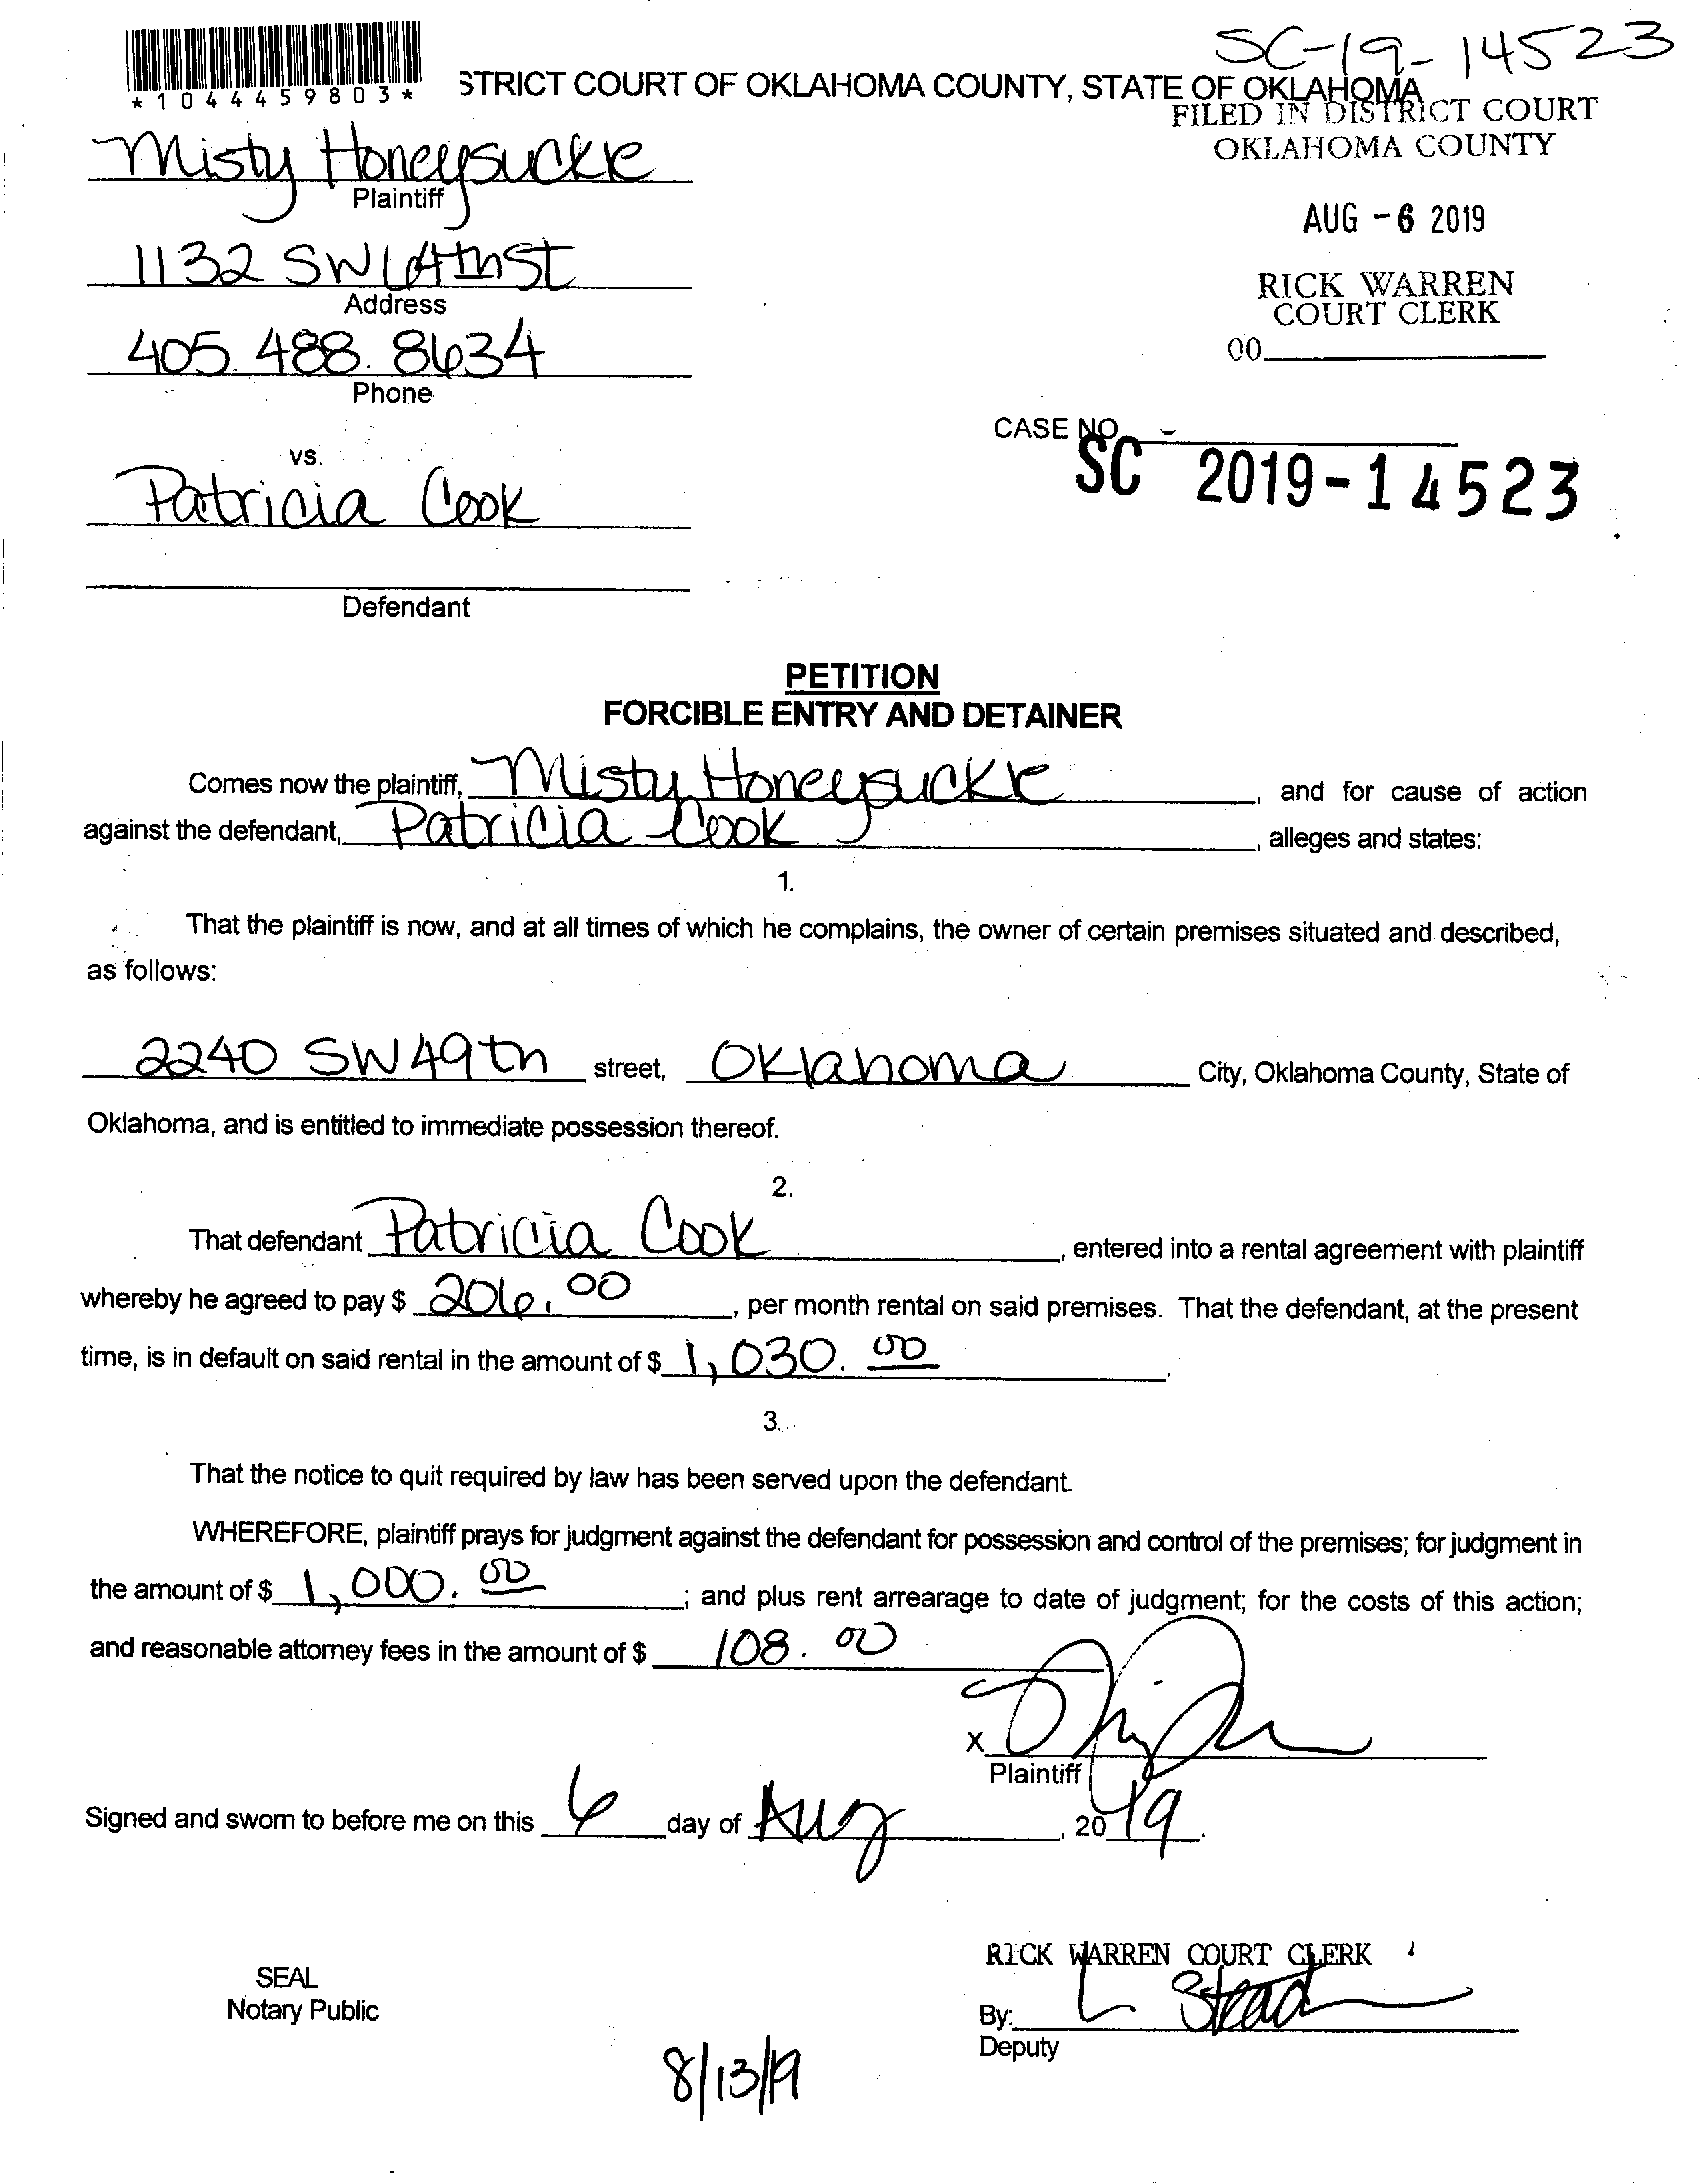 SC-19-14523
*1044459803*
STRICT COURT OF OKLAHOMA COUNTY, STATE OF OKLAHOMA
FILED IN DISTRICT COURT
OKLAHOMA COUNTY
Misty Honeysuckle
Plaintiff
AUG -6 2019
1132 SW 14th St
Address
RICK WARREN
COURT CLERK
405. 488. 8634
00
Phone
CASE NO.
vs.
SC 2019-14523
Patricia Cook
Defendant
PETITION
FORCIBLE ENTRY AND DETAINER
Comes now the plaintiff, Misty Honeysuckle, and for cause of action
against the defendant, Patricia Cook, alleges and states:
1.
That the plaintiff is now, and at all times of which he complains, the owner of certain premises situated and described,
as follows:
2240 SW 49th street, Oklahoma City, Oklahoma County, State of
Oklahoma, and is entitled to immediate possession thereof.
2.
That defendant Patricia Cook, entered into a rental agreement with plaintiff
whereby he agreed to pay $ 206.00, per month rental on said premises. That the defendant, at the present
time, is in default on said rental in the amount of $ 1,030.00.
3.
That the notice to quit required by law has been served upon the defendant.
WHEREFORE, plaintiff prays for judgment against the defendant for possession and control of the premises; for judgment in
the amount of $ 1,000.00; and plus rent arrearage to date of judgment; for the costs of this action;
and reasonable attorney fees in the amount of $ 108.00
X
Plaintiff
Signed and sworn to before me on this 6 day of Aug, 2019.
RICK WARREN COURT CLERK
SEAL
Notary Public
By: L Stead
Deputy
8/13/19